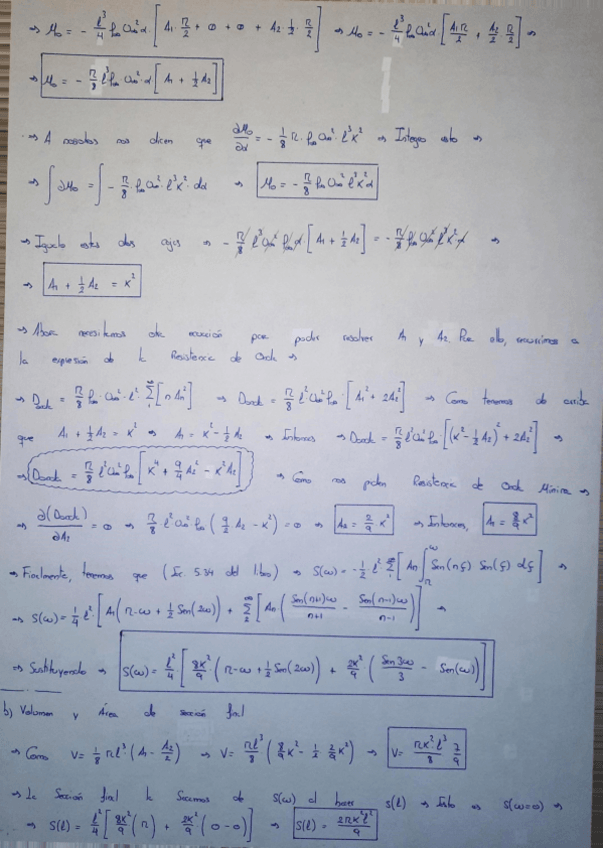 ⇒ M₀ = - l³/4 ρ∞ a∞² α · [A₁ π/2 + 0 + 0 + A₂ 1/2 · π/2] ⇒ M₀ = - l³/4 ρ∞ a∞² α [A₁π/2 + A₂/2 π/2] ⇒
⇒ M₀ = - π/8 l³ ρ∞ a∞² · α [A₁ + 1/2 A₂]
⇒ A nosotros nos dicen que ∂M₀/∂α = - 1/8 π · ρ∞ a∞² · l³ K² ⇒ Integro esto ⇒
⇒ ∫ ∂M₀ = ∫ - π/8 ρ∞ a∞² · l³ K² · dα ⇒ M₀ = - π/8 ρ∞ a∞² l³ K² α
⇒ Igualo estas dos ⇒ - π/8 l³ a∞² ρ∞ α · [A₁ + 1/2 A₂] = - π/8 ρ∞ a∞² l³ K² α ⇒
⇒ A₁ + 1/2 A₂ = K²
⇒ Ahora necesitamos otra ecuación para poder resolver A₁ y A₂. Por ello, recurrimos a
la expresión de la Resistencia de Onda ⇒
⇒ Donda = π/8 ρ∞ · a∞² · l² · Σ₁^∞ [n An²] ⇒ Donda = π/8 l² a∞² ρ∞ · [A₁² + 2A₂²] ⇒ Como tenemos de arriba
que A₁ + 1/2 A₂ = K² ⇒ A₁ = K² - 1/2 A₂ ⇒ Entonces ⇒ Donda = π/8 l² a∞² ρ∞ [(K² - 1/2 A₂)² + 2A₂²] ⇒
⇒ Donda = π/8 l² a∞² ρ∞ [K⁴ + 9/4 A₂² - K² A₂] ⇒ Como nos piden Resistencia de Onda Mínima ⇒
⇒ ∂(Donda)/∂A₂ = 0 ⇒ π/8 l² a∞² · ρ∞ (9/2 A₂ - K²) = 0 ⇒ A₂ = 2/9 K² ⇒ Entonces, A₁ = 8/9 K²
⇒ Finalmente, tenemos que (Ec. 5.34 del libro) ⇒ S(ω) = - 1/2 l² Σ₁^∞ [An ∫_π^ω Sen(nξ) Sen(ξ) dξ] ⇒
⇒ S(ω) = 1/4 l² · [A₁(π - ω + 1/2 Sen(2ω)) + Σ₂^∞ [An · (Sen(n+1)ω/n+1 - Sen(n-1)ω/n-1)] ⇒
⇒ Sustituyendo ⇒ S(ω) = l²/4 [8K²/9 · (π - ω + 1/2 Sen(2ω)) + 2K²/9 (Sen3ω/3 - Sen(ω))]
b) Volumen y Área de sección final
⇒ Como V = 1/8 π l³ · (A₁ - A₂/2) ⇒ V = πl³/8 (8/9 K² - 1/2 · 2/9 K²) ⇒ V = πK² · l³/8 7/9
⇒ La Sección final la Sacamos de S(ω) al hacer S(l) ⇒ Esto es S(ω=0) ⇒
⇒ S(l) = l²/4 [8K²/9 (π) + 2K²/9 (0 - 0)] ⇒ S(l) = 2πK² l²/9